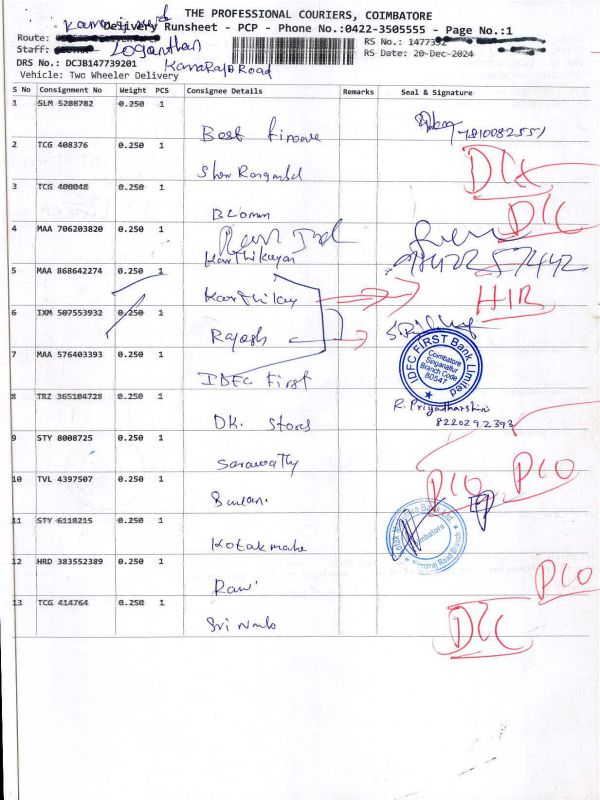 THE PROFESSIONAL COURIERS, COIMBATORE
Delivery Runsheet - PCP - Phone No.:0422-3505555 - Page No.:1
Route:
RS No.: 1477392
Staff: Loganthan
RS Date: 20-Dec-2024
DRS No.: DCJB147739201 KamaRaJa Road
Vehicle: Two Wheeler Delivery
S No Consignment No Weight PCS Consignee Details Remarks Seal & Signature
1 SLM 5208782 0.250 1
Best finance 7810082551
2 TCG 408376 0.250 1
DLC
3 TCG 400048 0.250 1
DLC
4 MAA 706203820 0.250 1
Karthikayan
5 MAA 868642274 0.250 1
Karthikay HIR
6 IXM 507553932 0.250 1
Rajesh
7 MAA 576403393 0.250 1
IDFC First
IDFC FIRST Bank Limited
Coimbatore
Singanallur
Branch Code
80547
8 TRZ 365104728 0.250 1
R. Priyadharshini
DK. Stores 8220292393
9 STY 8008725 0.250 1
10 TVL 4397507 0.250 1
PCO PCO
11 STY 6118215 0.250 1
Coimbatore
Kamaraj Road Branch
12 HRD 383552389 0.250 1
PCO
Ravi
13 TCG 414764 0.250 1
Sri DLC